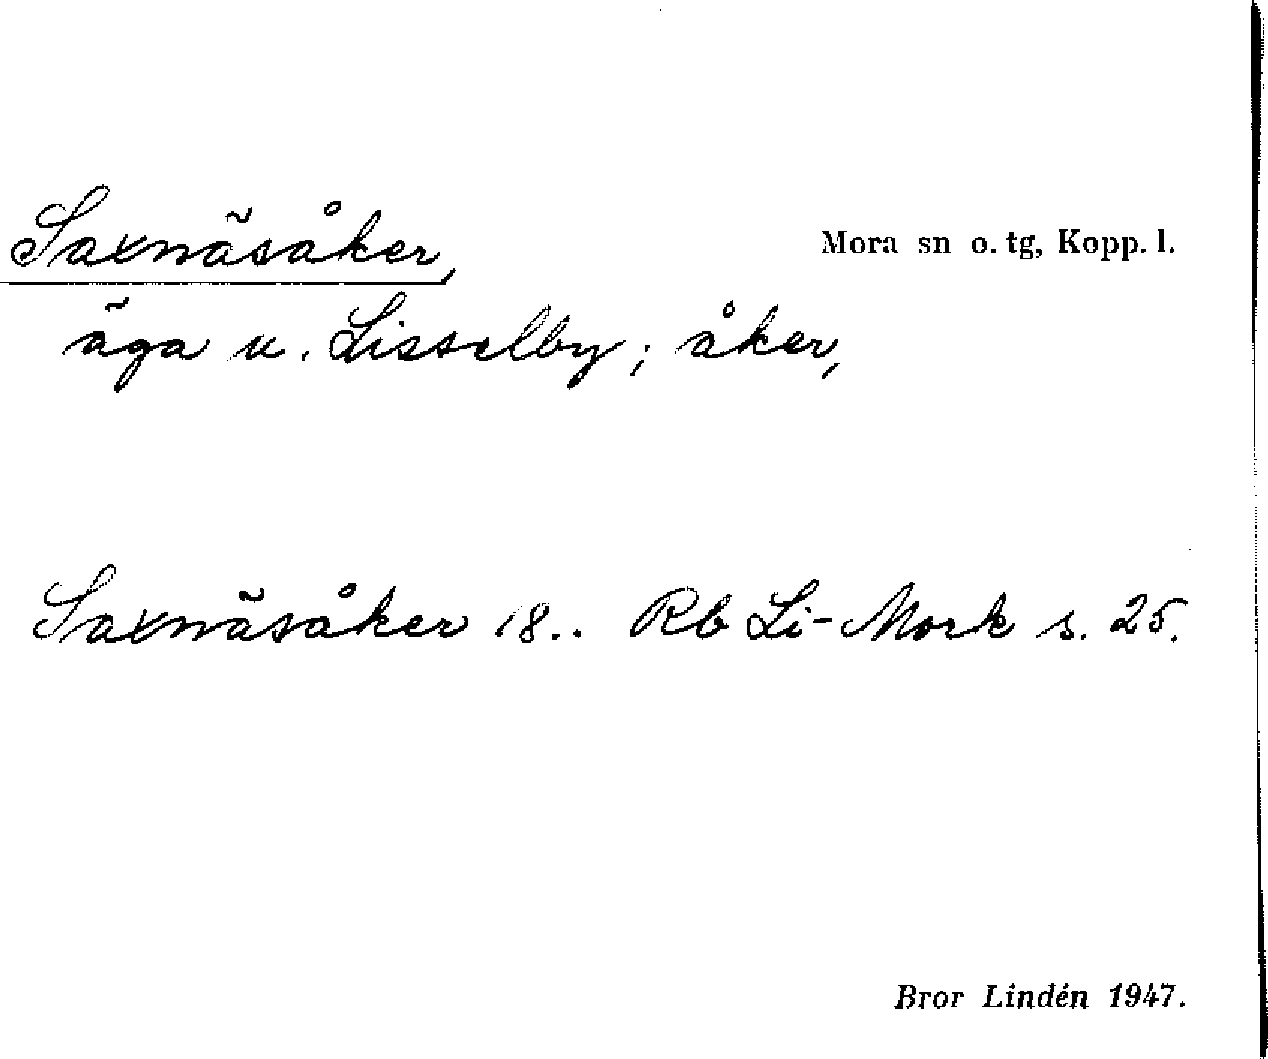 Saxnäsåker,
Mora sn o. tg, Kopp. l.
äga u. Lisselby; åker,
Saxnäsåker 18.. Rb Li-Mork s. 25.
Bror Lindén 1947.